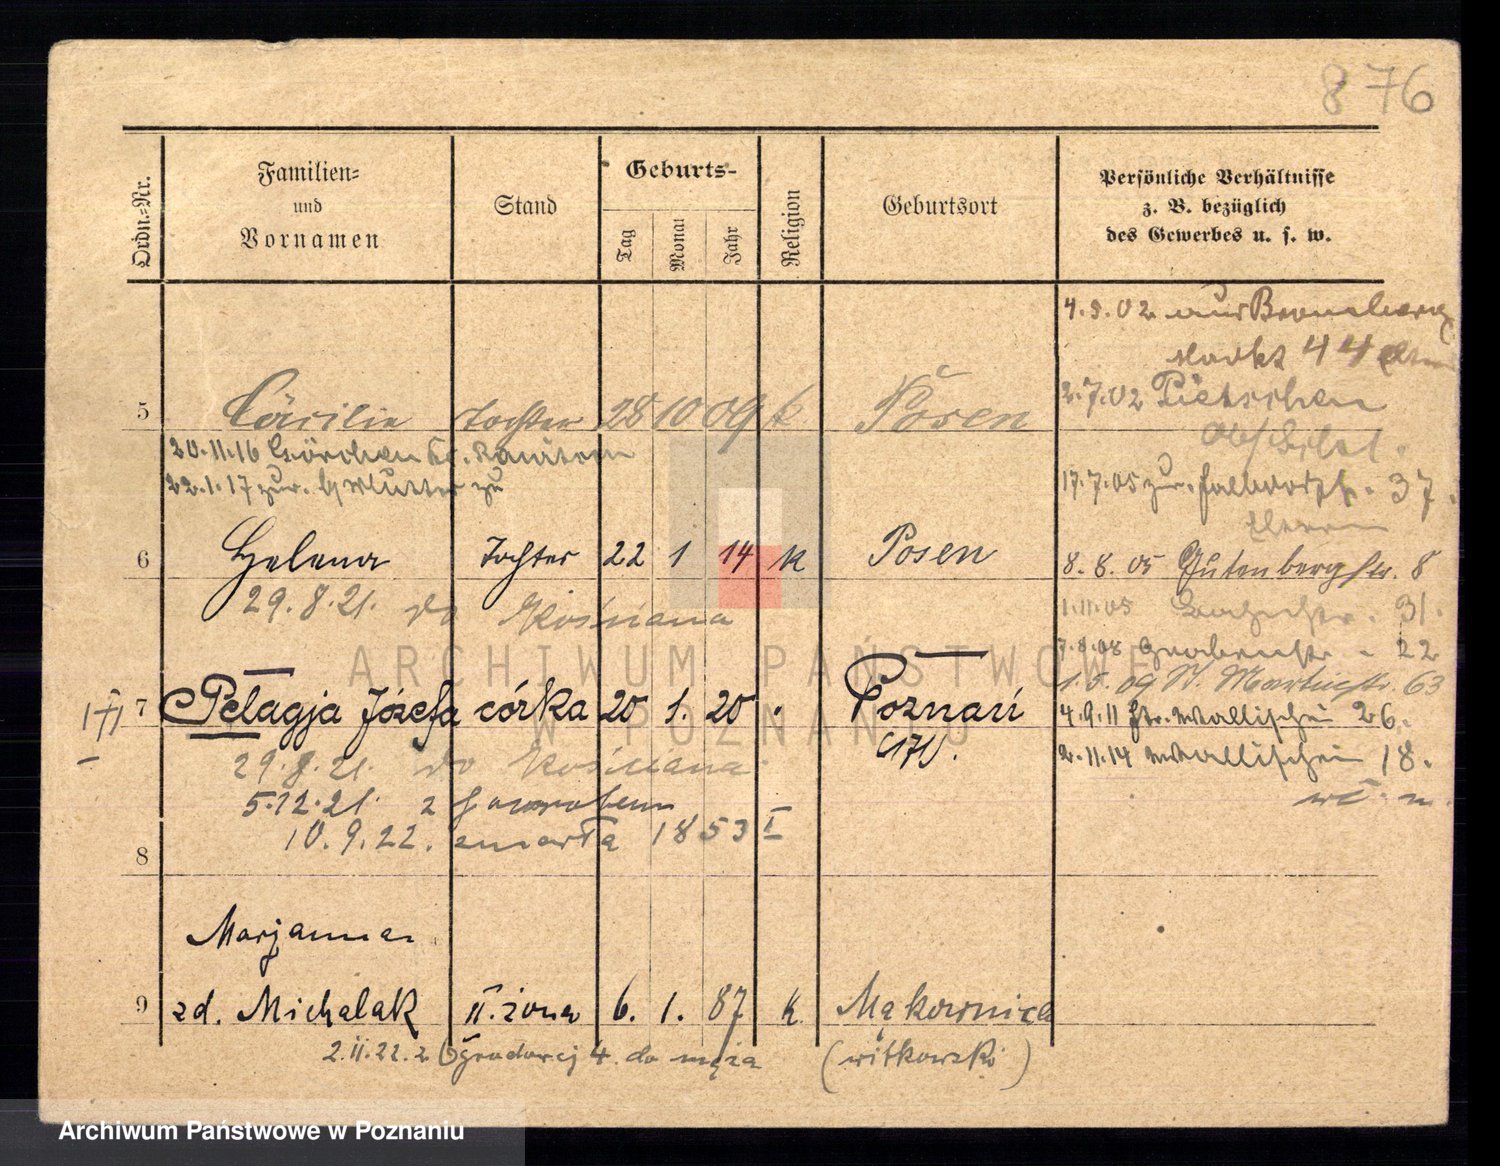 876
Ordn.-Nr.
Familien-
und
Vornamen
Stand
Geburts-
Tag
Monat
Jahr
Religion
Geburtsort
Persönliche Verhältnisse
z. B. bezüglich
des Gewerbes u. s. w.
4.9.02 aus Bromberg
Markt 44
2.7.02 Pietschen
17.7.05 zur. 37.
Eltern
8.8.05 Gutenbergstr. 8
1.11.05 31.
7.8.08 Grabenstr. 22
1.5.09 St. Martinstr. 63
4.9.11 Wallischei 26.
2.11.14 Wallischei 18.
5 Cäcilie Tochter 28 10 09 k Posen
20.11.16 Görchen Kr. Rawitsch
22.1.17 zur. Mutter zu
6 Helena Tochter 22 1 14 k Posen
29.8.21. do Kościana
7 Pelagja Józefa córka 20 1. 20 Poznań
(171).
29.8.21. do Kościana
5.12.21. z
10.9.22. zmarła 1853 I
8
Marjanna
9 zd. Michalak II. żona 6. 1. 87 k Mąkownica
2.11.22. z Ogrodowej 4. do męża (witkowski)
ARCHIWUM PAŃSTWOWE
W POZNANIU
Archiwum Państwowe w Poznaniu